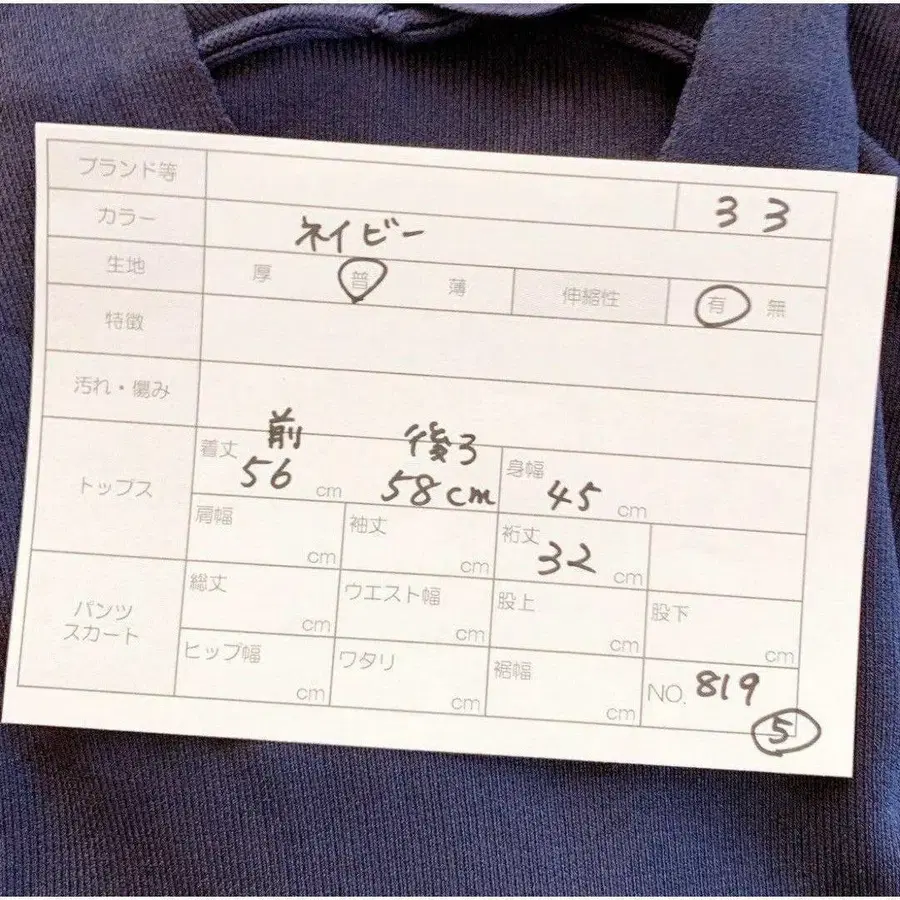 ブランド等 33
カラー ネイビー
生地 厚 普 薄 伸縮性 有 無
特徴
汚れ・傷み
トップス 着丈 前 56 cm 後ろ 58cm 身幅 45 cm
肩幅 cm 袖丈 cm 裄丈 32 cm
パンツ スカート 総丈 cm ウエスト幅 cm 股上 cm 股下 cm
ヒップ幅 cm ワタリ cm 裾幅 cm NO. 819
5